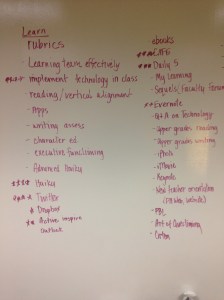 Learn
rubrics
- Learning team effectively
**** implement technology in class
reading/vertical alignment
- Apps
- writing assess
- character ed
executive functioning
- Advanced Daisy
**** Haiku
*** * Twitter
* Dropbox
** Active inspire
ebooks
**** CAFE
*** Daily 5
- My Learning
- Signals/Faculty forum
** Evernote
- Q&A on Technology
- Upper grades reading
- Upper grades writing
- iPads
- iMovie
- Keynote
- New teacher orientation
- PBL
- Art of Questioning